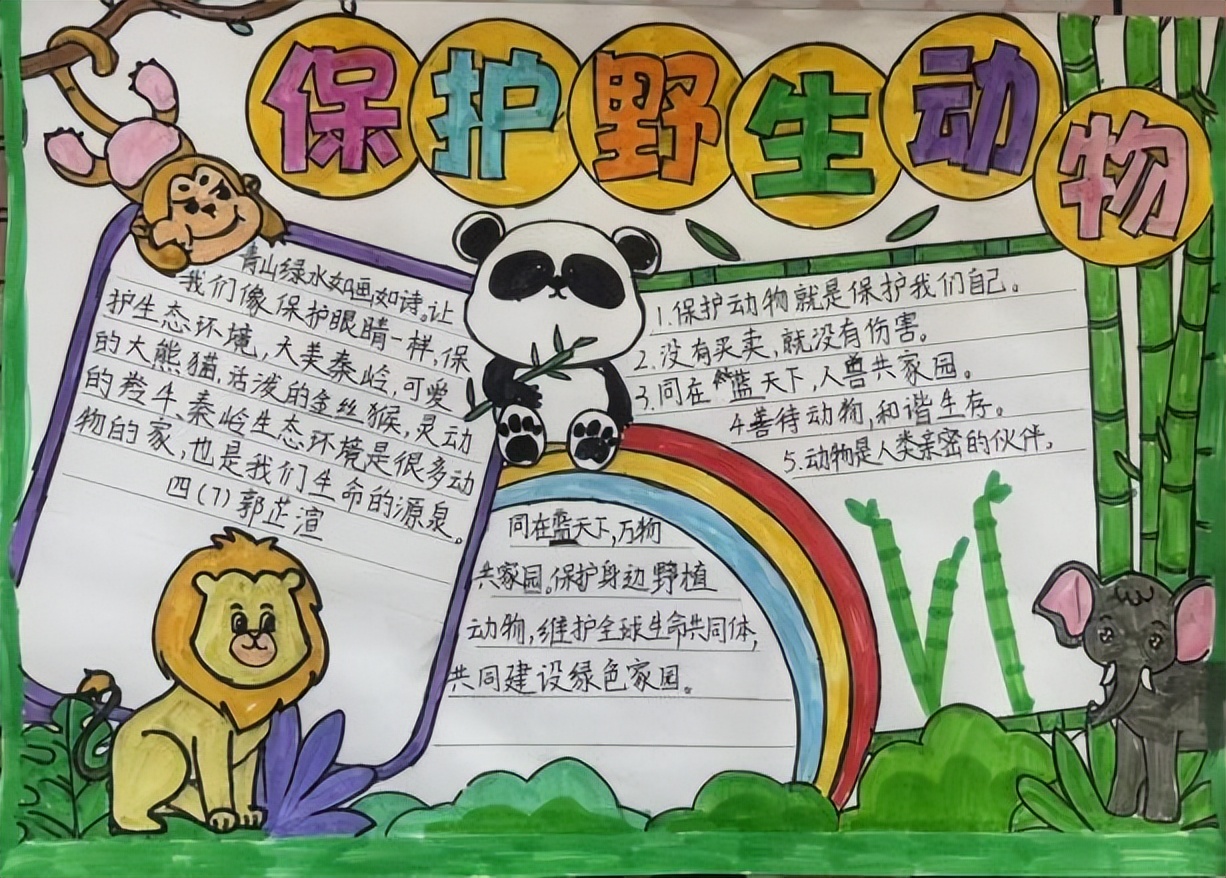 保护野生动物
青山绿水如画,如诗。让
我们像保护眼睛一样,保
护生态环境,大美秦岭,可爱
的大熊猫,活泼的金丝猴,灵动
的羚牛、秦岭生态环境是很多动
物的家,也是我们生命的源泉。
四(7)郭芷渲
1.保护动物就是保护我们自己。
2.没有买卖,就没有伤害。
3.同在蓝天下,人兽共家园。
4善待动物,和谐生存。
5.动物是人类亲密的伙伴,
同在蓝天下,万物
共家园。保护身边野植
动物,维护全球生命共同体,
共同建设绿色家园。